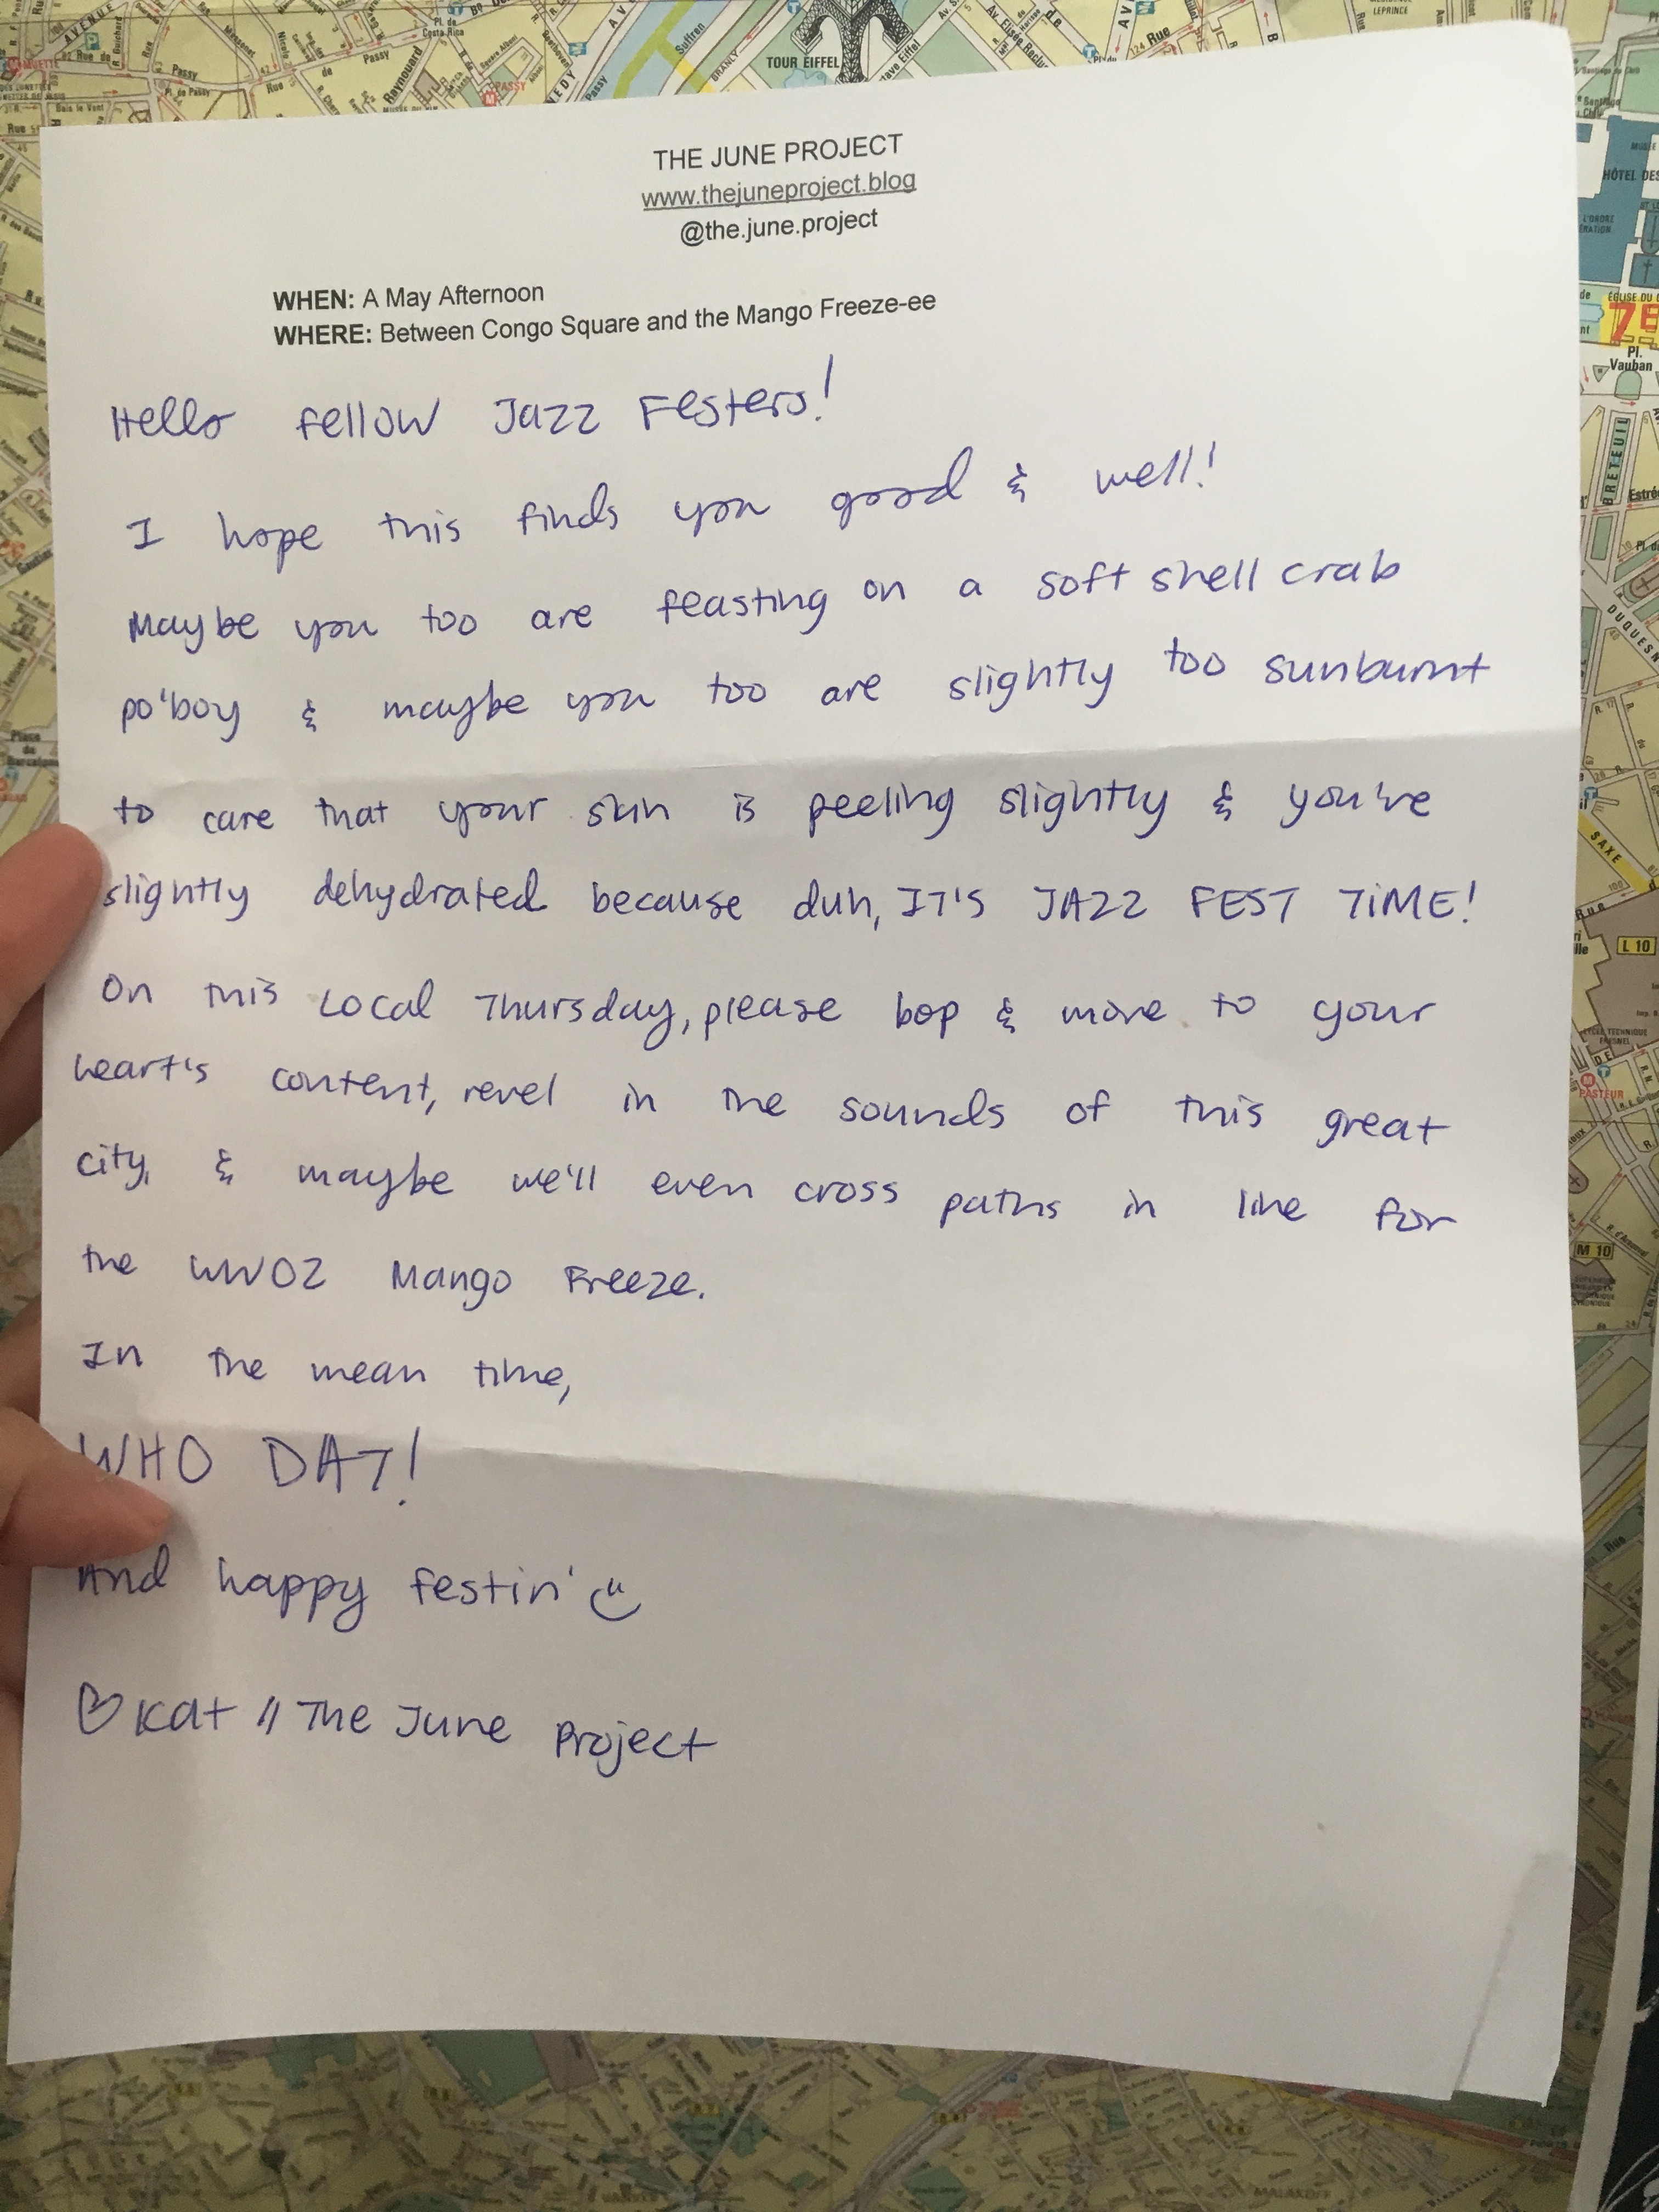 THE JUNE PROJECT
www.thejuneproject.blog
@the.june.project
WHEN: A May Afternoon
WHERE: Between Congo Square and the Mango Freeze-ee
Hello fellow Jazz Festers!
I hope this finds you good & well!
Maybe you too are feasting on a soft shell crab
po'boy & maybe you too are slightly too sunburnt
to care that your skin is peeling slightly & you're
slightly dehydrated because duh, IT'S JAZZ FEST TIME!
On this Local Thursday, please bop & move to your
heart's content, revel in the sounds of this great
city, & maybe we'll even cross paths in line for
the WWOZ Mango Freeze.
In the mean time,
WHO DAT!
And happy festin'
Kat // The June Project
TOUR EIFFEL
Passy
Pl. de Passy
Raynouard
PASSY
Suffren
AVENUE
Pl. de
Costa Rica
LEPRINCE
HÔTEL DES
Pl.
Vauban
BRETEUIL
SAXE
L 10
PASTEUR
M 10